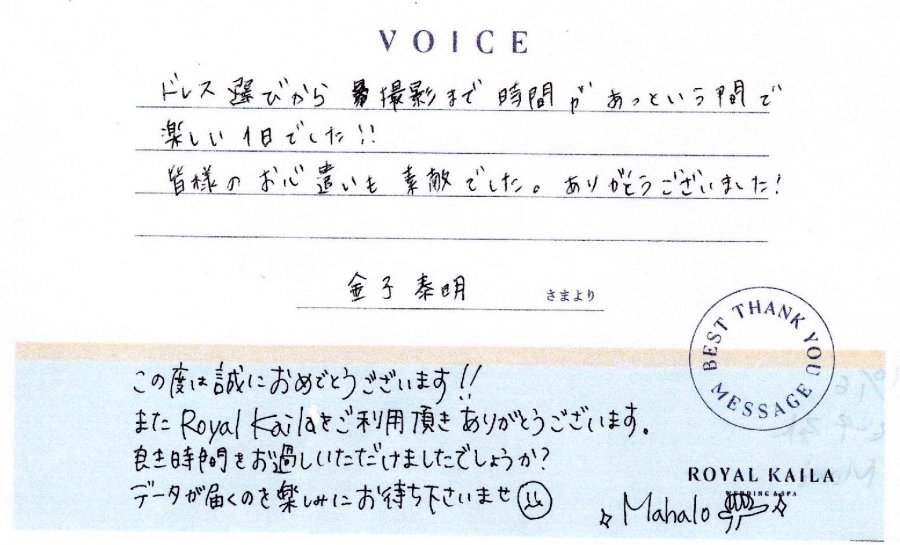 VOICE
ドレス選びから 撮影まで 時間が あっという間で
楽しい 1日でした!!
皆様の お心遣いも 素敵でした。ありがとうございました!
金子泰明 さまより
BEST THANK YOU MESSAGE
この度は誠におめでとうございます!!
また Royal Kailaをご利用頂き ありがとうございます。
良き時間を お過しいただけましたでしょうか?
データが届くのを 楽しみに お待ち下さいませ
ROYAL KAILA
WEDDING & SPA
☆Mahalo ☆